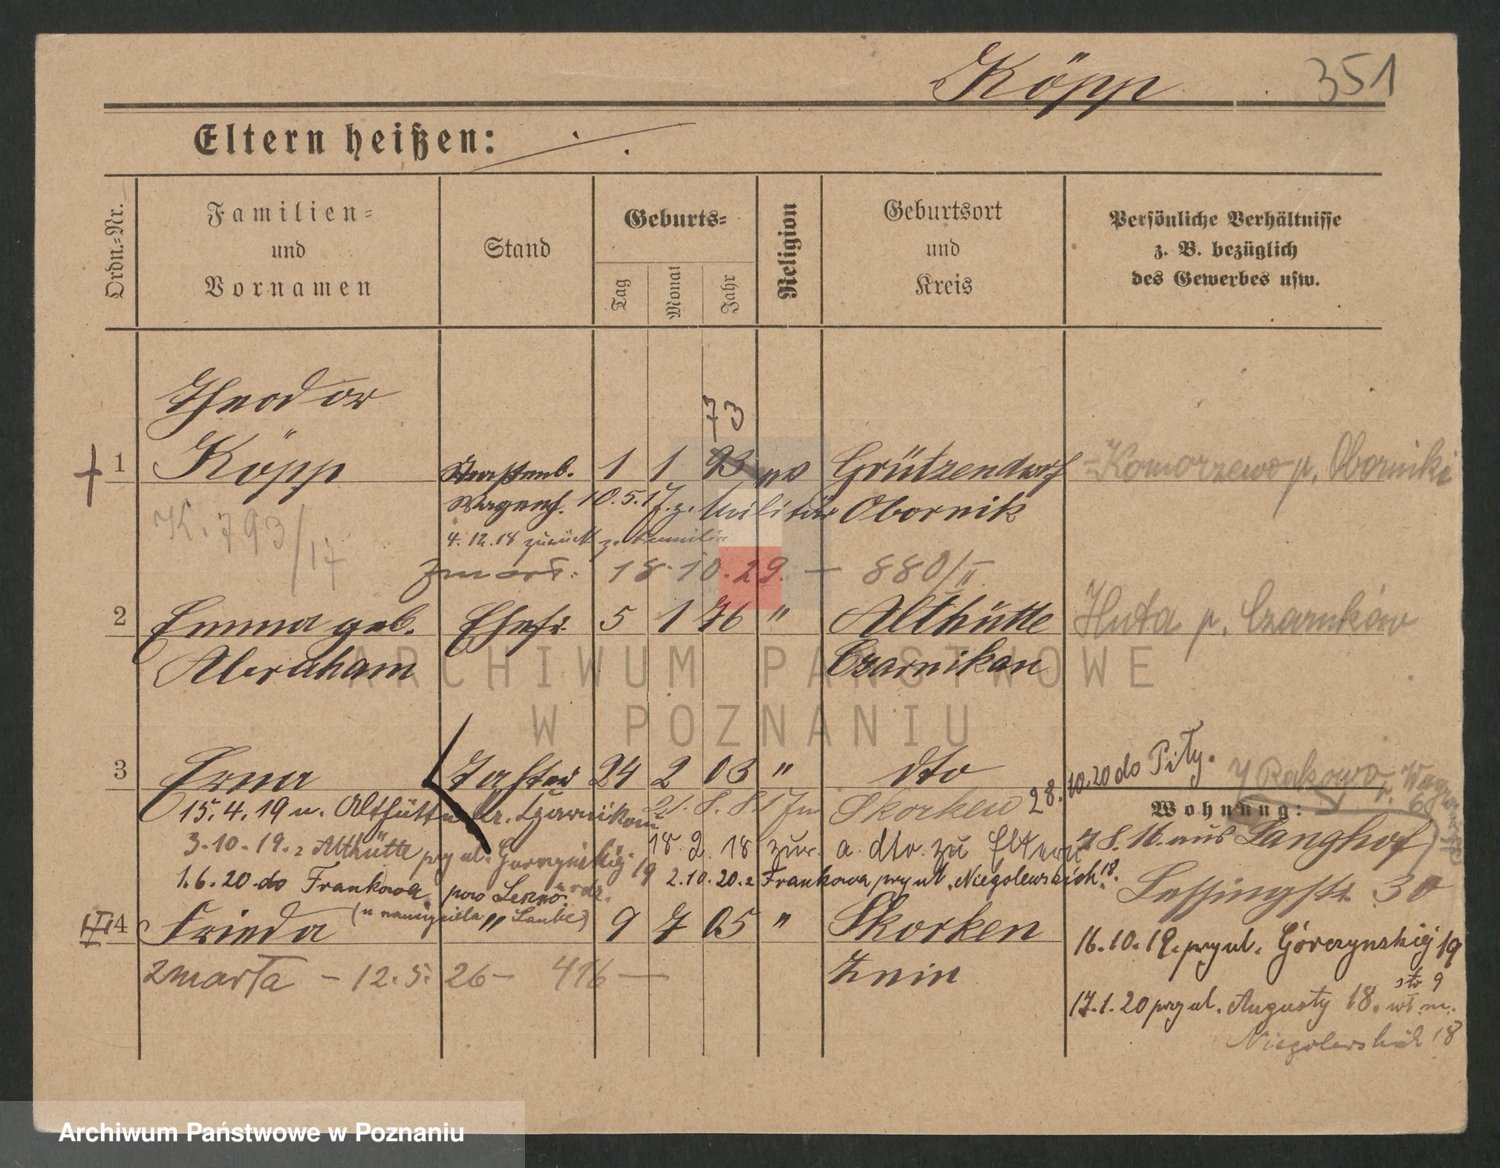 Köpp 351
Eltern heißen:
Ordn.-Nr.
Familien-
und
Vornamen
Stand
Geburts-
Tag
Monat
Jahr
Religion
Geburtsort
und
Kreis
Persönliche Verhältnisse
z. B. bezüglich
des Gewerbes usw.
Theodor
73
1 Köpp 1 1 Grützendorf Komorzewo p. Oborniki
10.5.17 z. Militär Obornik
K. 793/17
4.12.18 zurück z. Familie
zmarł. 18.10.29. — 880/II
2 Emma geb. Ehefr. 5 1 76 " Althütte Huta p. Czarnków
Abraham Czarnikau
3 Erna Tochter 24 2 03 " dto 28.10.20 do Piły.
15.4.19 n. Althütte Kr. Czarnikau Skorken
Wohnung:
3.10.19. z Althütte przy ul. Górczyńskiej 19 18 2 18 zur. a. dto. zu Eltern
7.8.16. aus Langhof
1.6.20 do Frankowa pow Leszno 2.10.20 z Frankowa przy ul. Niegolewskich 18.
Lessingstr. 30
(u nauczyciela Laube)
4 Frieda " 9 7 05 " Skorken
16.10.19. przy ul. Górczyńskiej 19
zmarła - 12.5. 26 - 416 — Znin
17.1.20 przy ul. Augusty 18.
Niegolewskich 18
ARCHIWUM PAŃSTWOWE
W POZNANIU
Archiwum Państwowe w Poznaniu